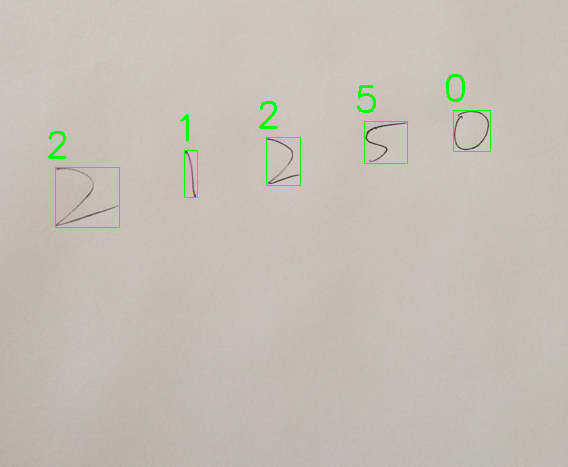 2 1 2 5 0
2 1 2 5 0